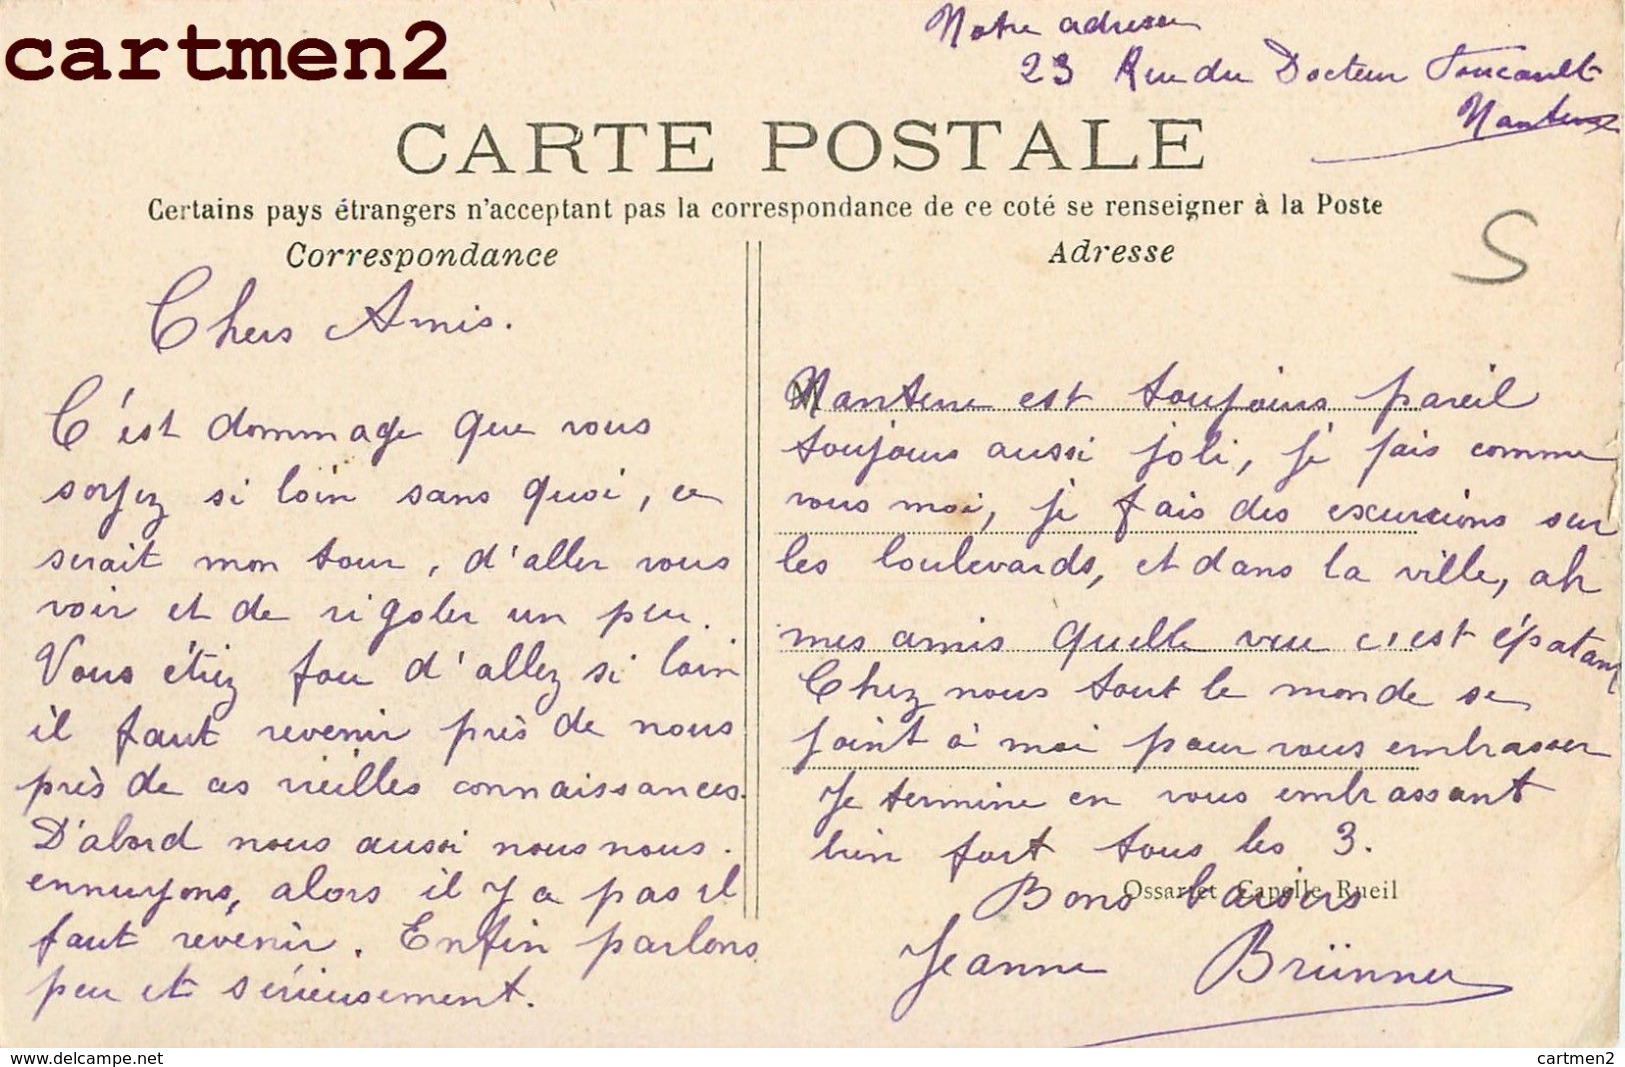 cartmen2
Notre adresse
23 Rue du Docteur Foucault
Nanterre
CARTE POSTALE
Certains pays étrangers n'acceptant pas la correspondance de ce coté se renseigner à la Poste
Correspondance
Adresse
S
Chers Amis.
C'est dommage que vous
soyez si loin sans quoi, ce
serait mon tour, d'aller vous
voir et de rigoler un peu.
Vous étiez fou d'allez si loin
il faut revenir près de nous
près de ces vieilles connaissances.
D'abord nous aussi nous nous.
ennuyons, alors il y a pas il
faut revenir. Enfin parlons
peu et sérieusement.
Nanterre est toujours pareil
toujours aussi joli, je fais comme
vous moi, je fais des excursions sur
les boulevards, et dans la ville, ah
mes amis quelle vue c'est épatant
Chez nous tout le monde se
joint à moi pour vous embrasser
Je termine en vous embrassant
bien fort tous les 3.
Bons baisers
Ossartet Capelle Rueil
Jeanne Brünner
https://www.delcampe.net
cartmen2